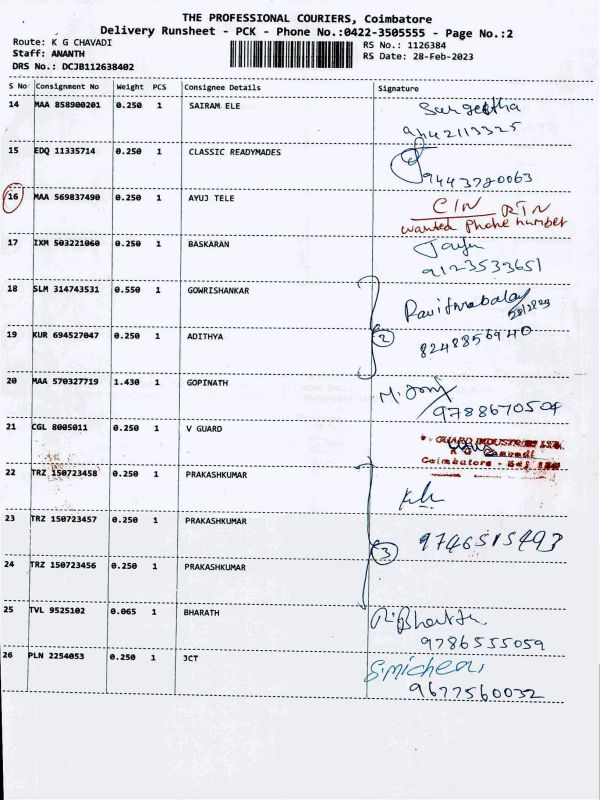 THE PROFESSIONAL COURIERS, Coimbatore
Delivery Runsheet - PCK - Phone No.:0422-3505555 - Page No.:2
Route: K G CHAVADI
RS No.: 1126384
Staff: ANANTH
RS Date: 28-Feb-2023
DRS No.: DCJB112638402
S No Consignment No Weight PCS Consignee Details Signature
14 MAA 858900201 0.250 1 SAIRAM ELE Sangeetha
9442113325
15 EDQ 11335714 0.250 1 CLASSIC READYMADES
9443720063
16 MAA 569837490 0.250 1 AYUJ TELE C/N RTN
wanted phone number
17 IXM 503221060 0.250 1 BASKARAN
9123533651
18 SLM 314743531 0.550 1 GOWRISHANKAR Pavithrabala
19 KUR 694527047 0.250 1 ADITHYA 2 8248856940
20 MAA 570327719 1.430 1 GOPINATH
9788670504
21 CGL 8005011 0.250 1 V GUARD V. GUARD INDUSTRIES LTD.
Coimbatore
22 TRZ 150723458 0.250 1 PRAKASHKUMAR
23 TRZ 150723457 0.250 1 PRAKASHKUMAR 3 9746515493
24 TRZ 150723456 0.250 1 PRAKASHKUMAR
25 TVL 9525102 0.065 1 BHARATH R. Bharath
9786555059
26 PLN 2254053 0.250 1 JCT S. Micheal
9677560032